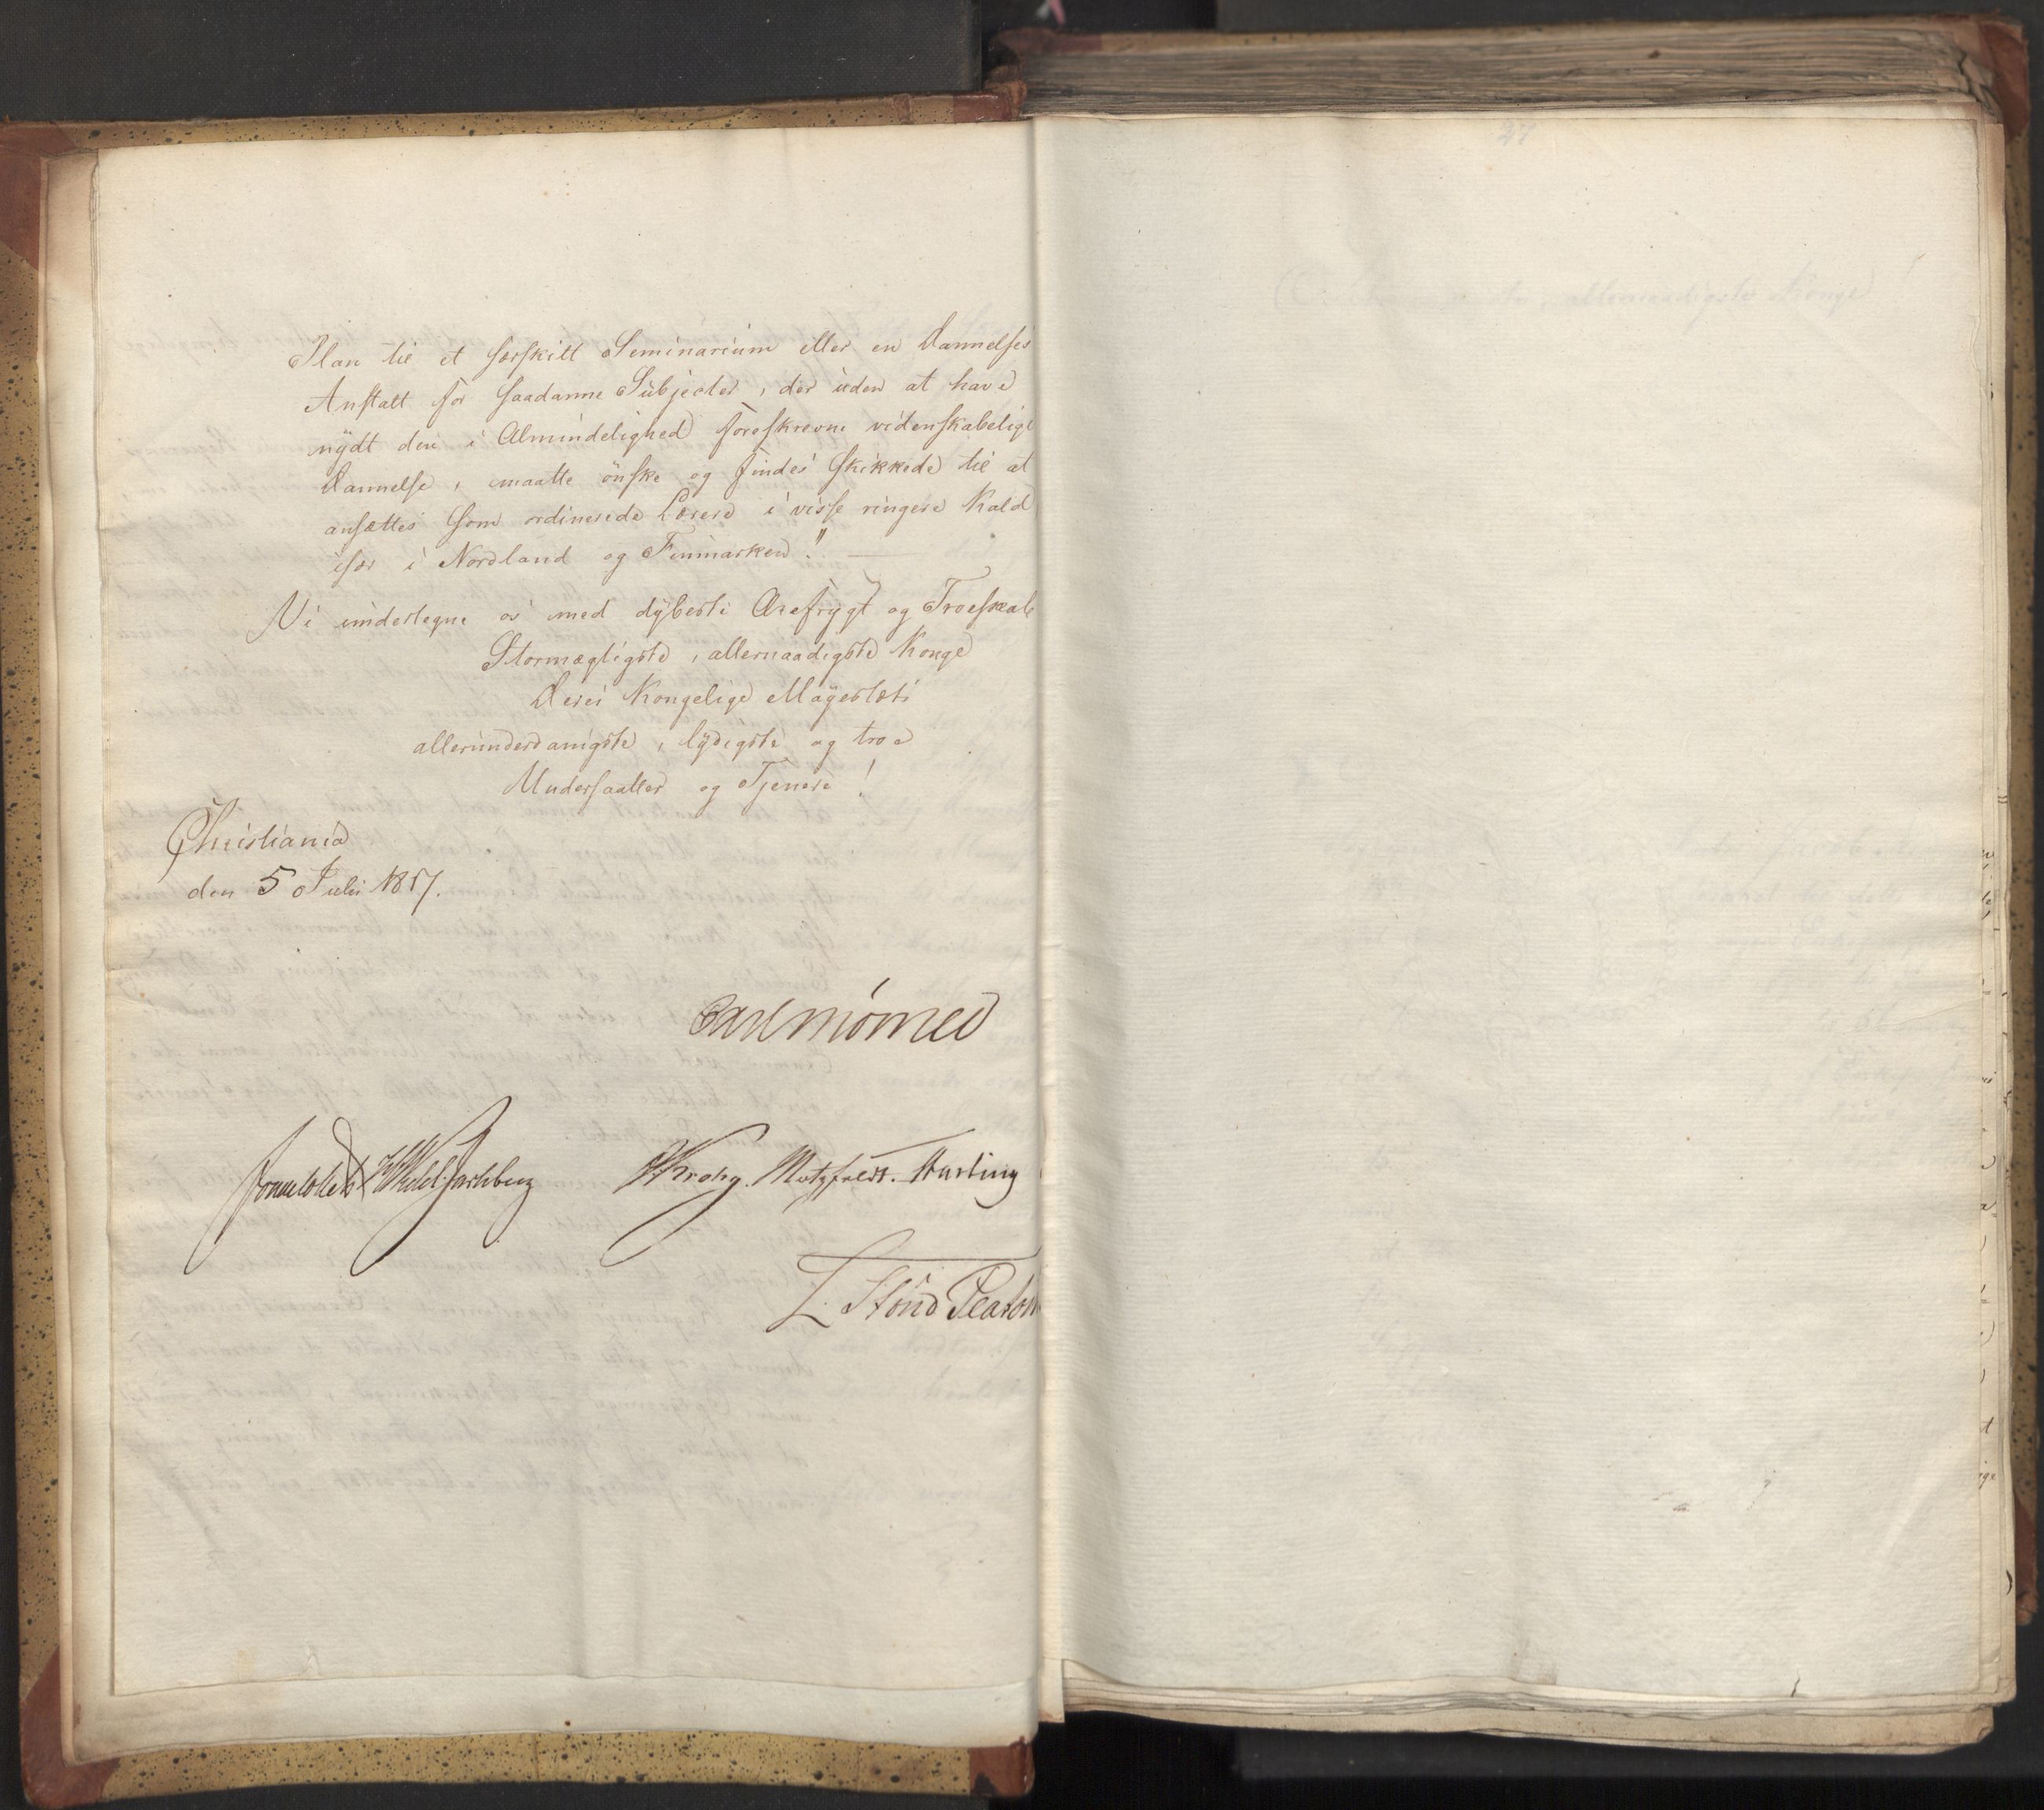 Plan til et særskilt Seminarium eller en Dannelses
Anstalt for saadanne Subjecter, der uden at have
nydt den i Almindelighed foreskrevne videnskabelige
Dannelse, maatte önske og findes skikkede til at
ansættes som ordinerede Lærere i visse ringere Kald
især i Nordland og Finmarken." —
Vi undertegne os med dybeste Ærefrygt og Troeskab
Stormægtigste, allernaadigste Konge
Deres Kongelige Mayestæts
allerunderdanigste, lydigste og troe
Undersaatter og Tjenere!
Christiania
den 5 Juli 1817.
Carl Mörner
Sommerhielm HWedel Jarlsberg Krohg. Motzfeldt. Hartung
L. Stoud Platou
27
allernaadigste Konge!